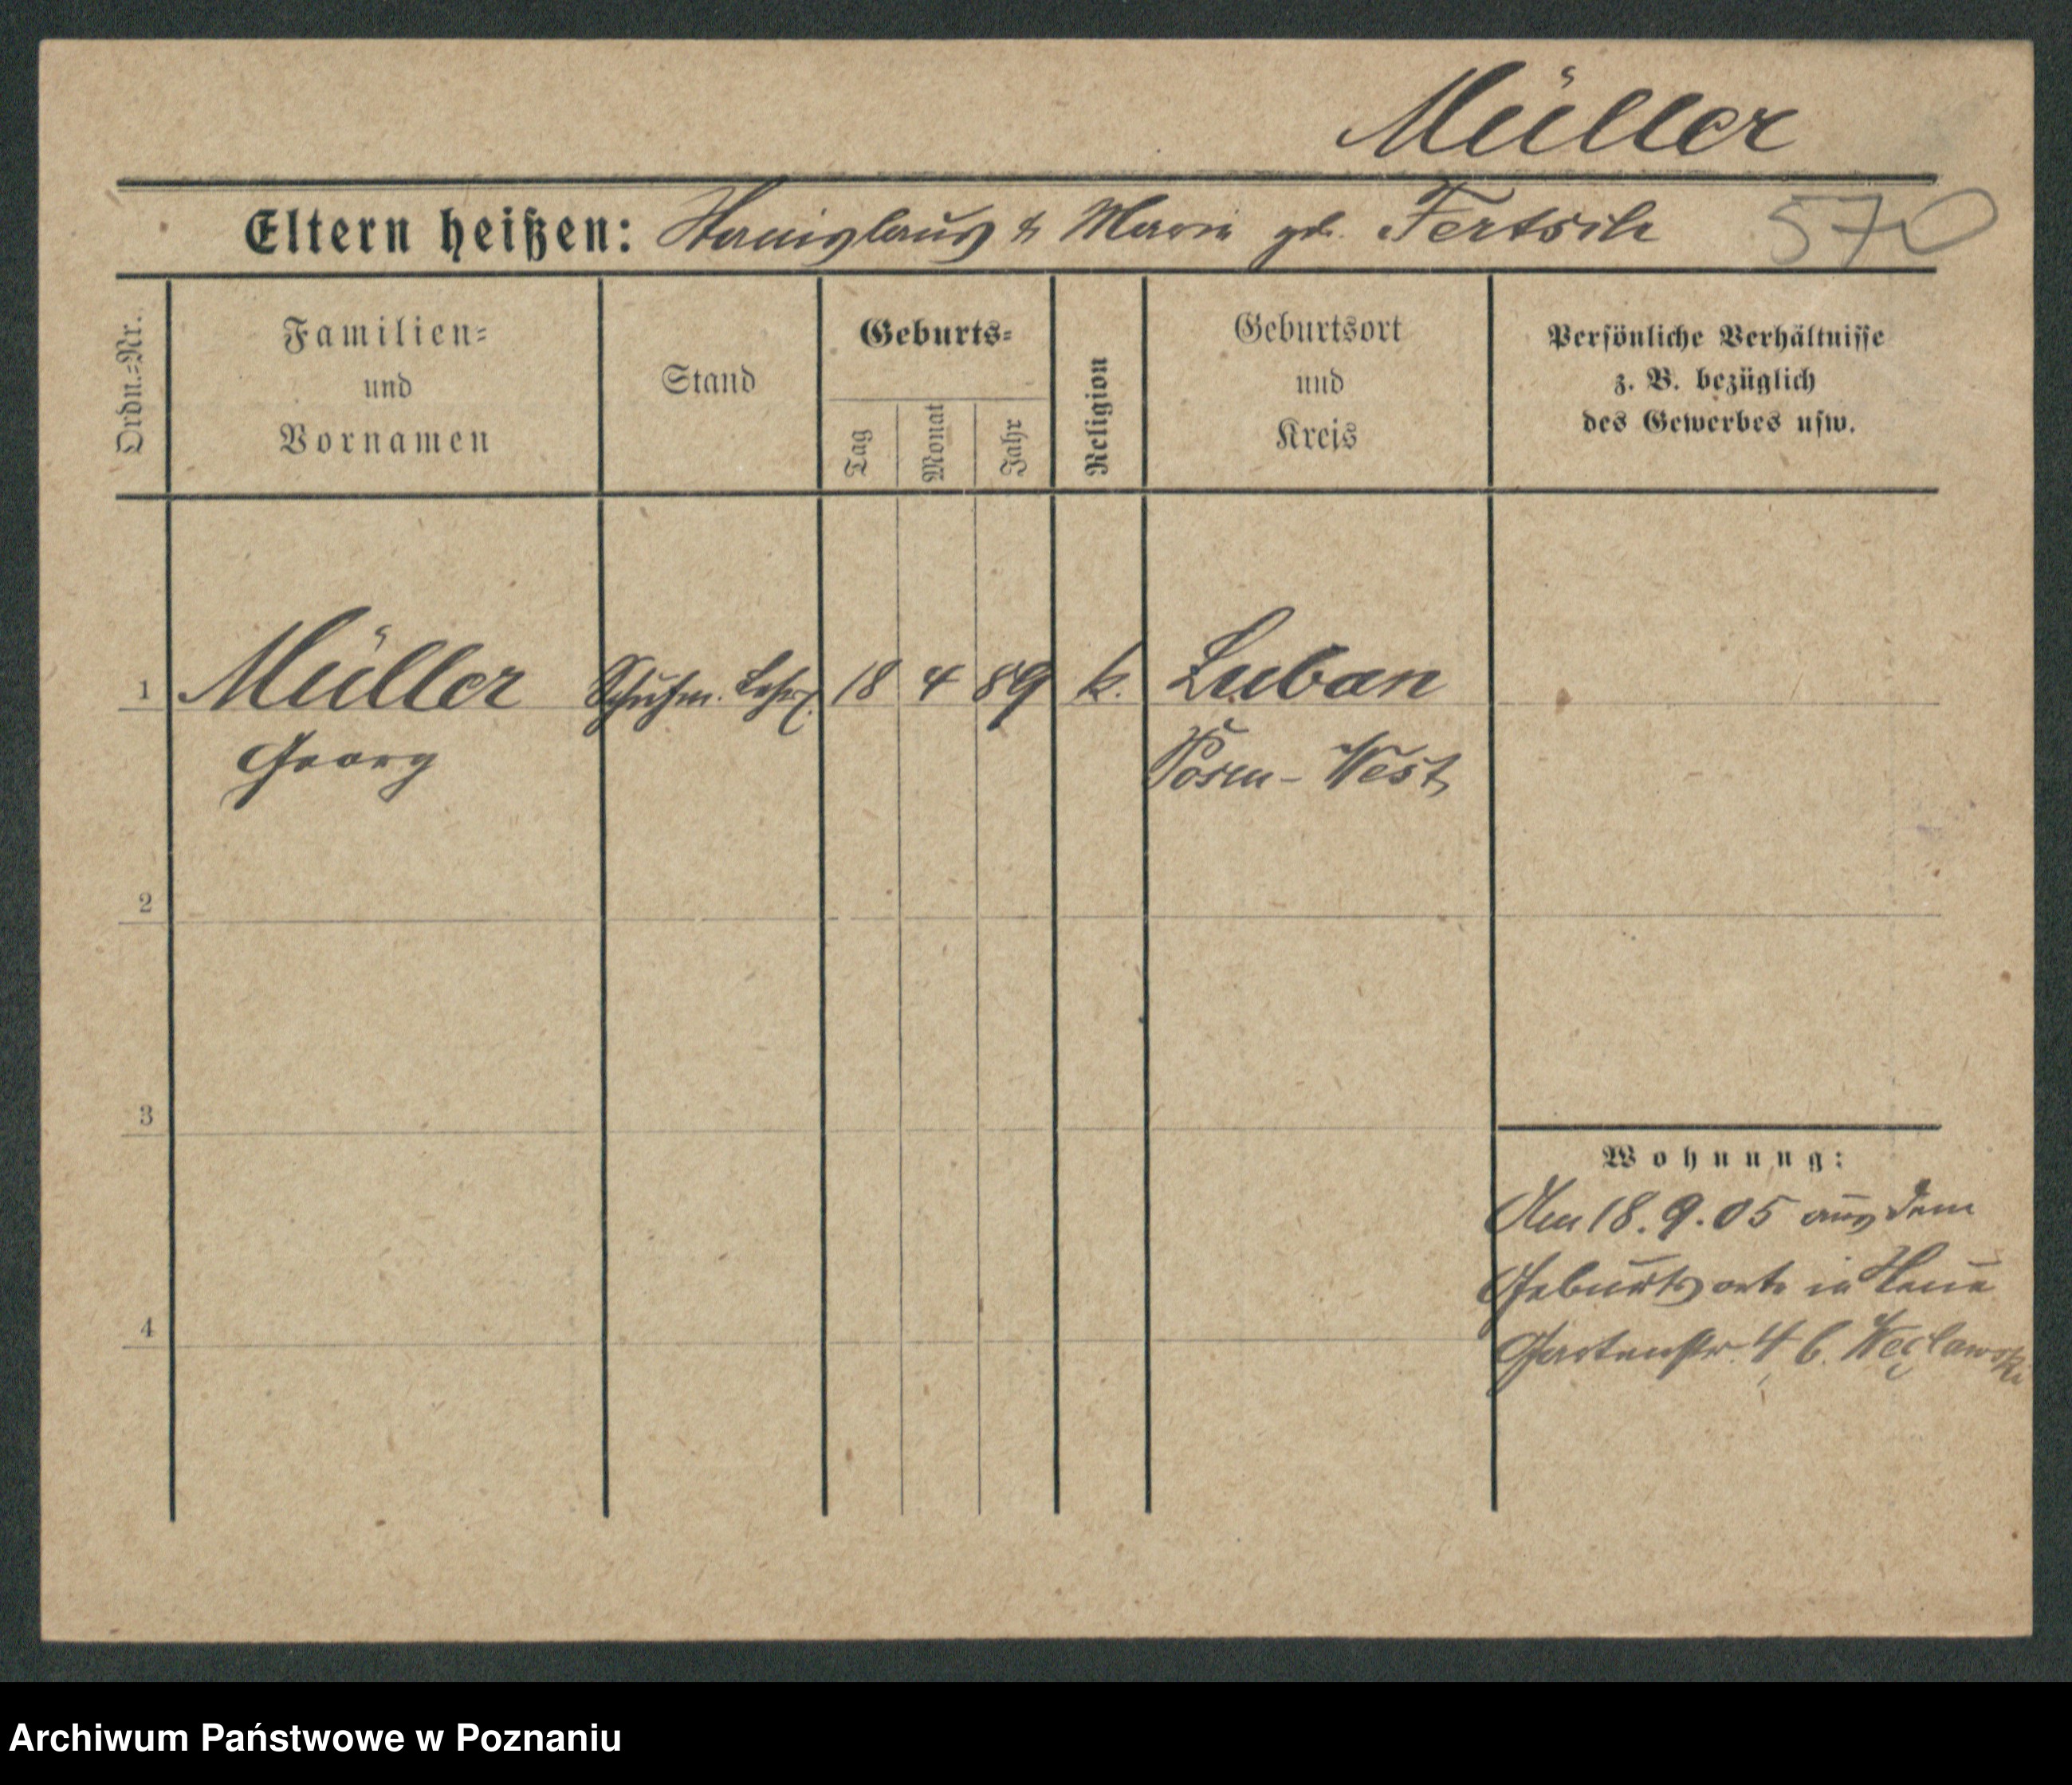 Müller
Eltern heißen: Stanislaus & Marie geb. Fertsch 570
Ordn.-Nr.
Familien-
und
Vornamen
Stand
Geburts-
Tag
Monat
Jahr
Religion
Geburtsort
und
Kreis
Persönliche Verhältnisse
z. B. bezüglich
des Gewerbes usw.
1 Müller Schuhm. Lehrl. 18 4 89 k. Luban
Georg Posen-West
2
3
4
Wohnung:
Am 18.9.05 aus dem
Geburtsorte in Neue
Gartenstr. 4 b. Węcławski
Archiwum Państwowe w Poznaniu